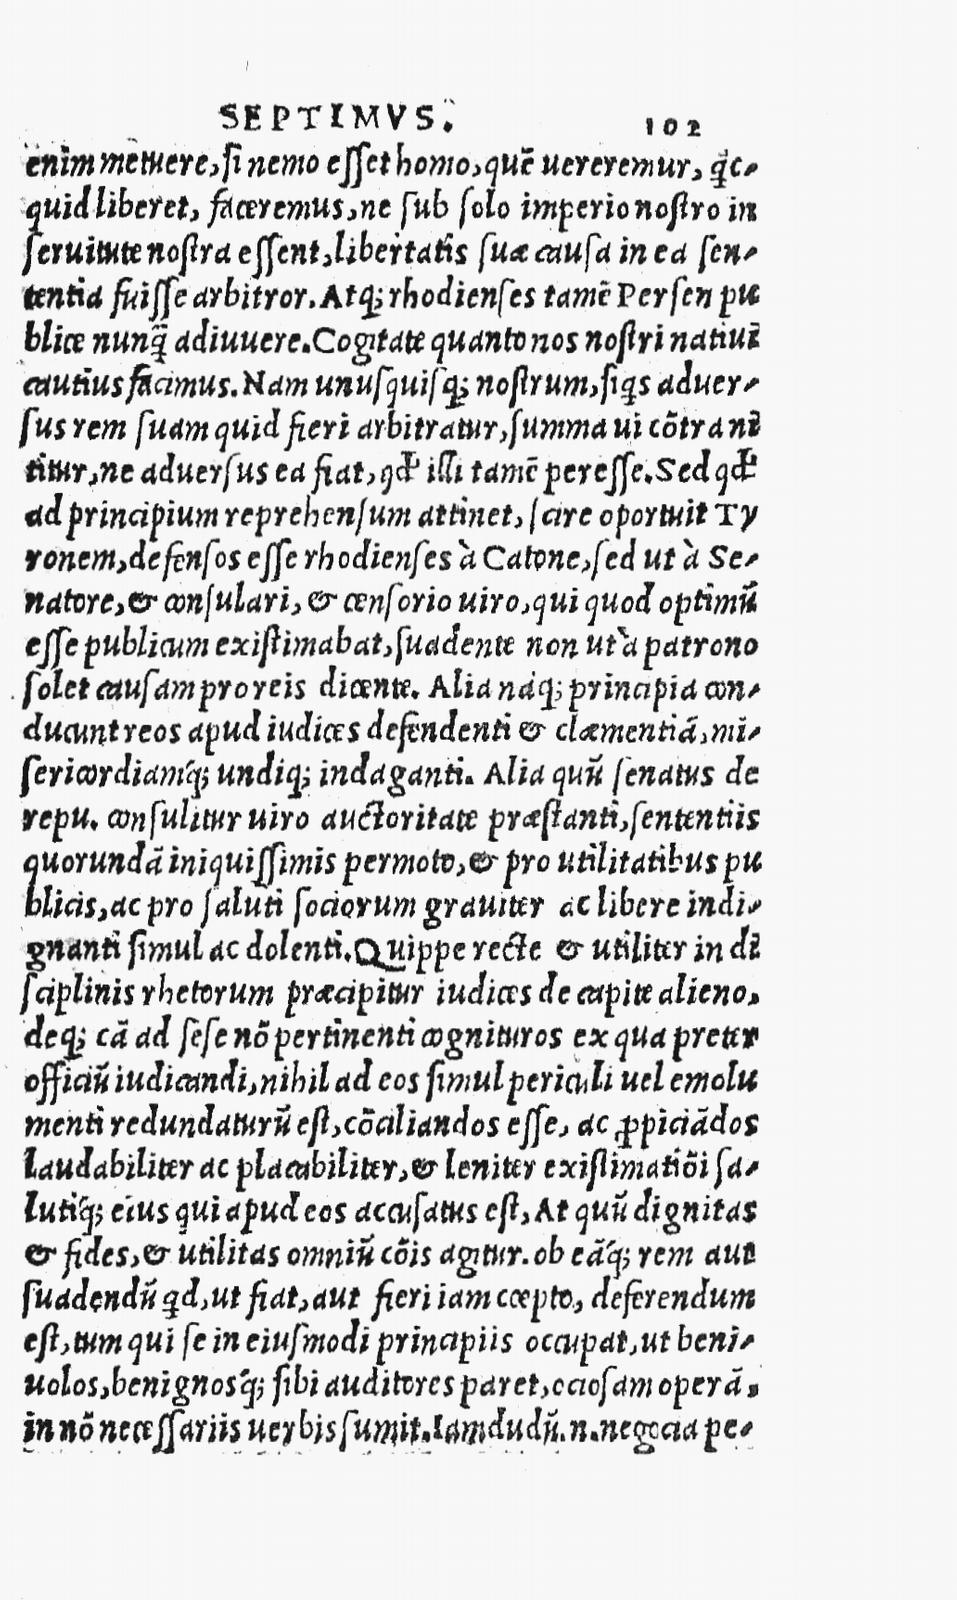 SEPTIMVS. 102
enim metuere, si nemo esset homo, quē uereremur, q̄c-
quid liberet, faceremus, ne sub solo imperio nostro in
seruitute nostra essent, libertatis suæ causa in ea sen-
tentia fuisse arbitror. Atq; rhodienses tamē Persen pu
blice nunq̄ adiuuere. Cogitate quanto nos nostri natiuī
cautius facimus. Nam unusquisq; nostrum, siq̄s aduer-
sus rem suam quid fieri arbitratur, summa ui cōtra nī
titur, ne aduersus ea fiat, qđ illi tamē peresse. Sed qđ
ad principium reprehensum attinet, scire oportuit Ty
ronem, defensos esse rhodienses à Catone, sed ut à Se-
natore, & consulari, & censorio uiro, qui quod optimū
esse publicum existimabat, suadente non ut à patrono
solet causam pro reis dicente. Alia náq; principia con-
ducunt reos apud iudices defendenti & clæmentiā, mi-
sericordiamq́; undiq; indaganti. Alia quū senatus de
repu. consulitur uiro auctoritate præstanti, sententiis
quorundā iniquissimis permoto, & pro utilitatibus pu
blicis, ac pro saluti sociorum grauiter ac libere indi-
gnanti simul ac dolenti. Quippe recte & utiliter in dī
sciplinis rhetorum præcipitur iudices de capite alieno,
deq; cā ad sese nō pertinenti cognituros ex qua preter
officiū iudicandi, nihil ad eos simul periculi uel emolu
menti redundaturū est, cōciliandos esse, ac ꝓpiciādos
laudabiliter ac placabiliter, & leniter existimatiōi sa-
lutiq́; eius qui apud eos accusatus est, At quū dignitas
& fides, & utilitas omniū cōis agitur. ob eāq́; rem aut
suadendū qd, ut fiat, aut fieri iam cœpto, deferendum
est, tum qui se in eiusmodi principiis occupat, ut beni-
uolos, benignosq́; sibi auditores paret, ociosam operā,
in nō necessariis uerbis sumit. Iamdudū. n. negocia pe-